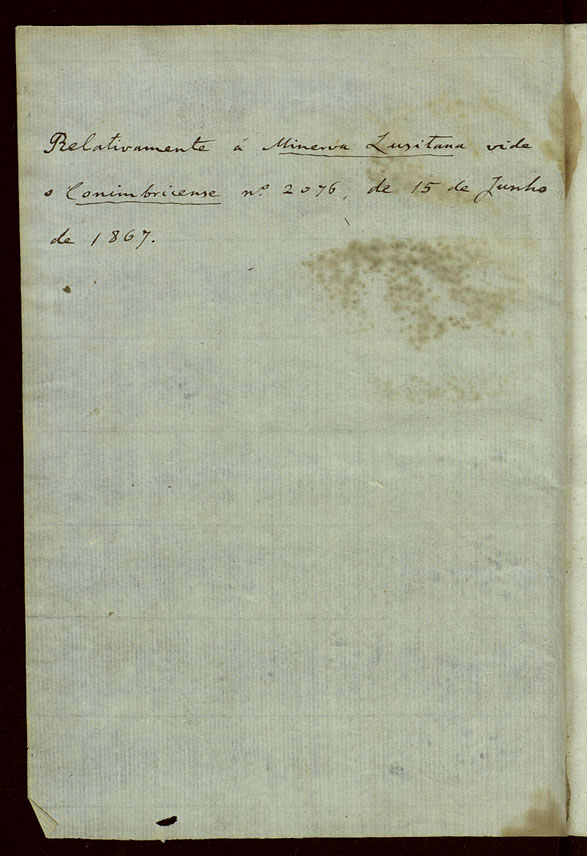 Relativamente á Minerva Lusitana vide
o Conimbricense nº 2076, de 15 de Junho
de 1867.